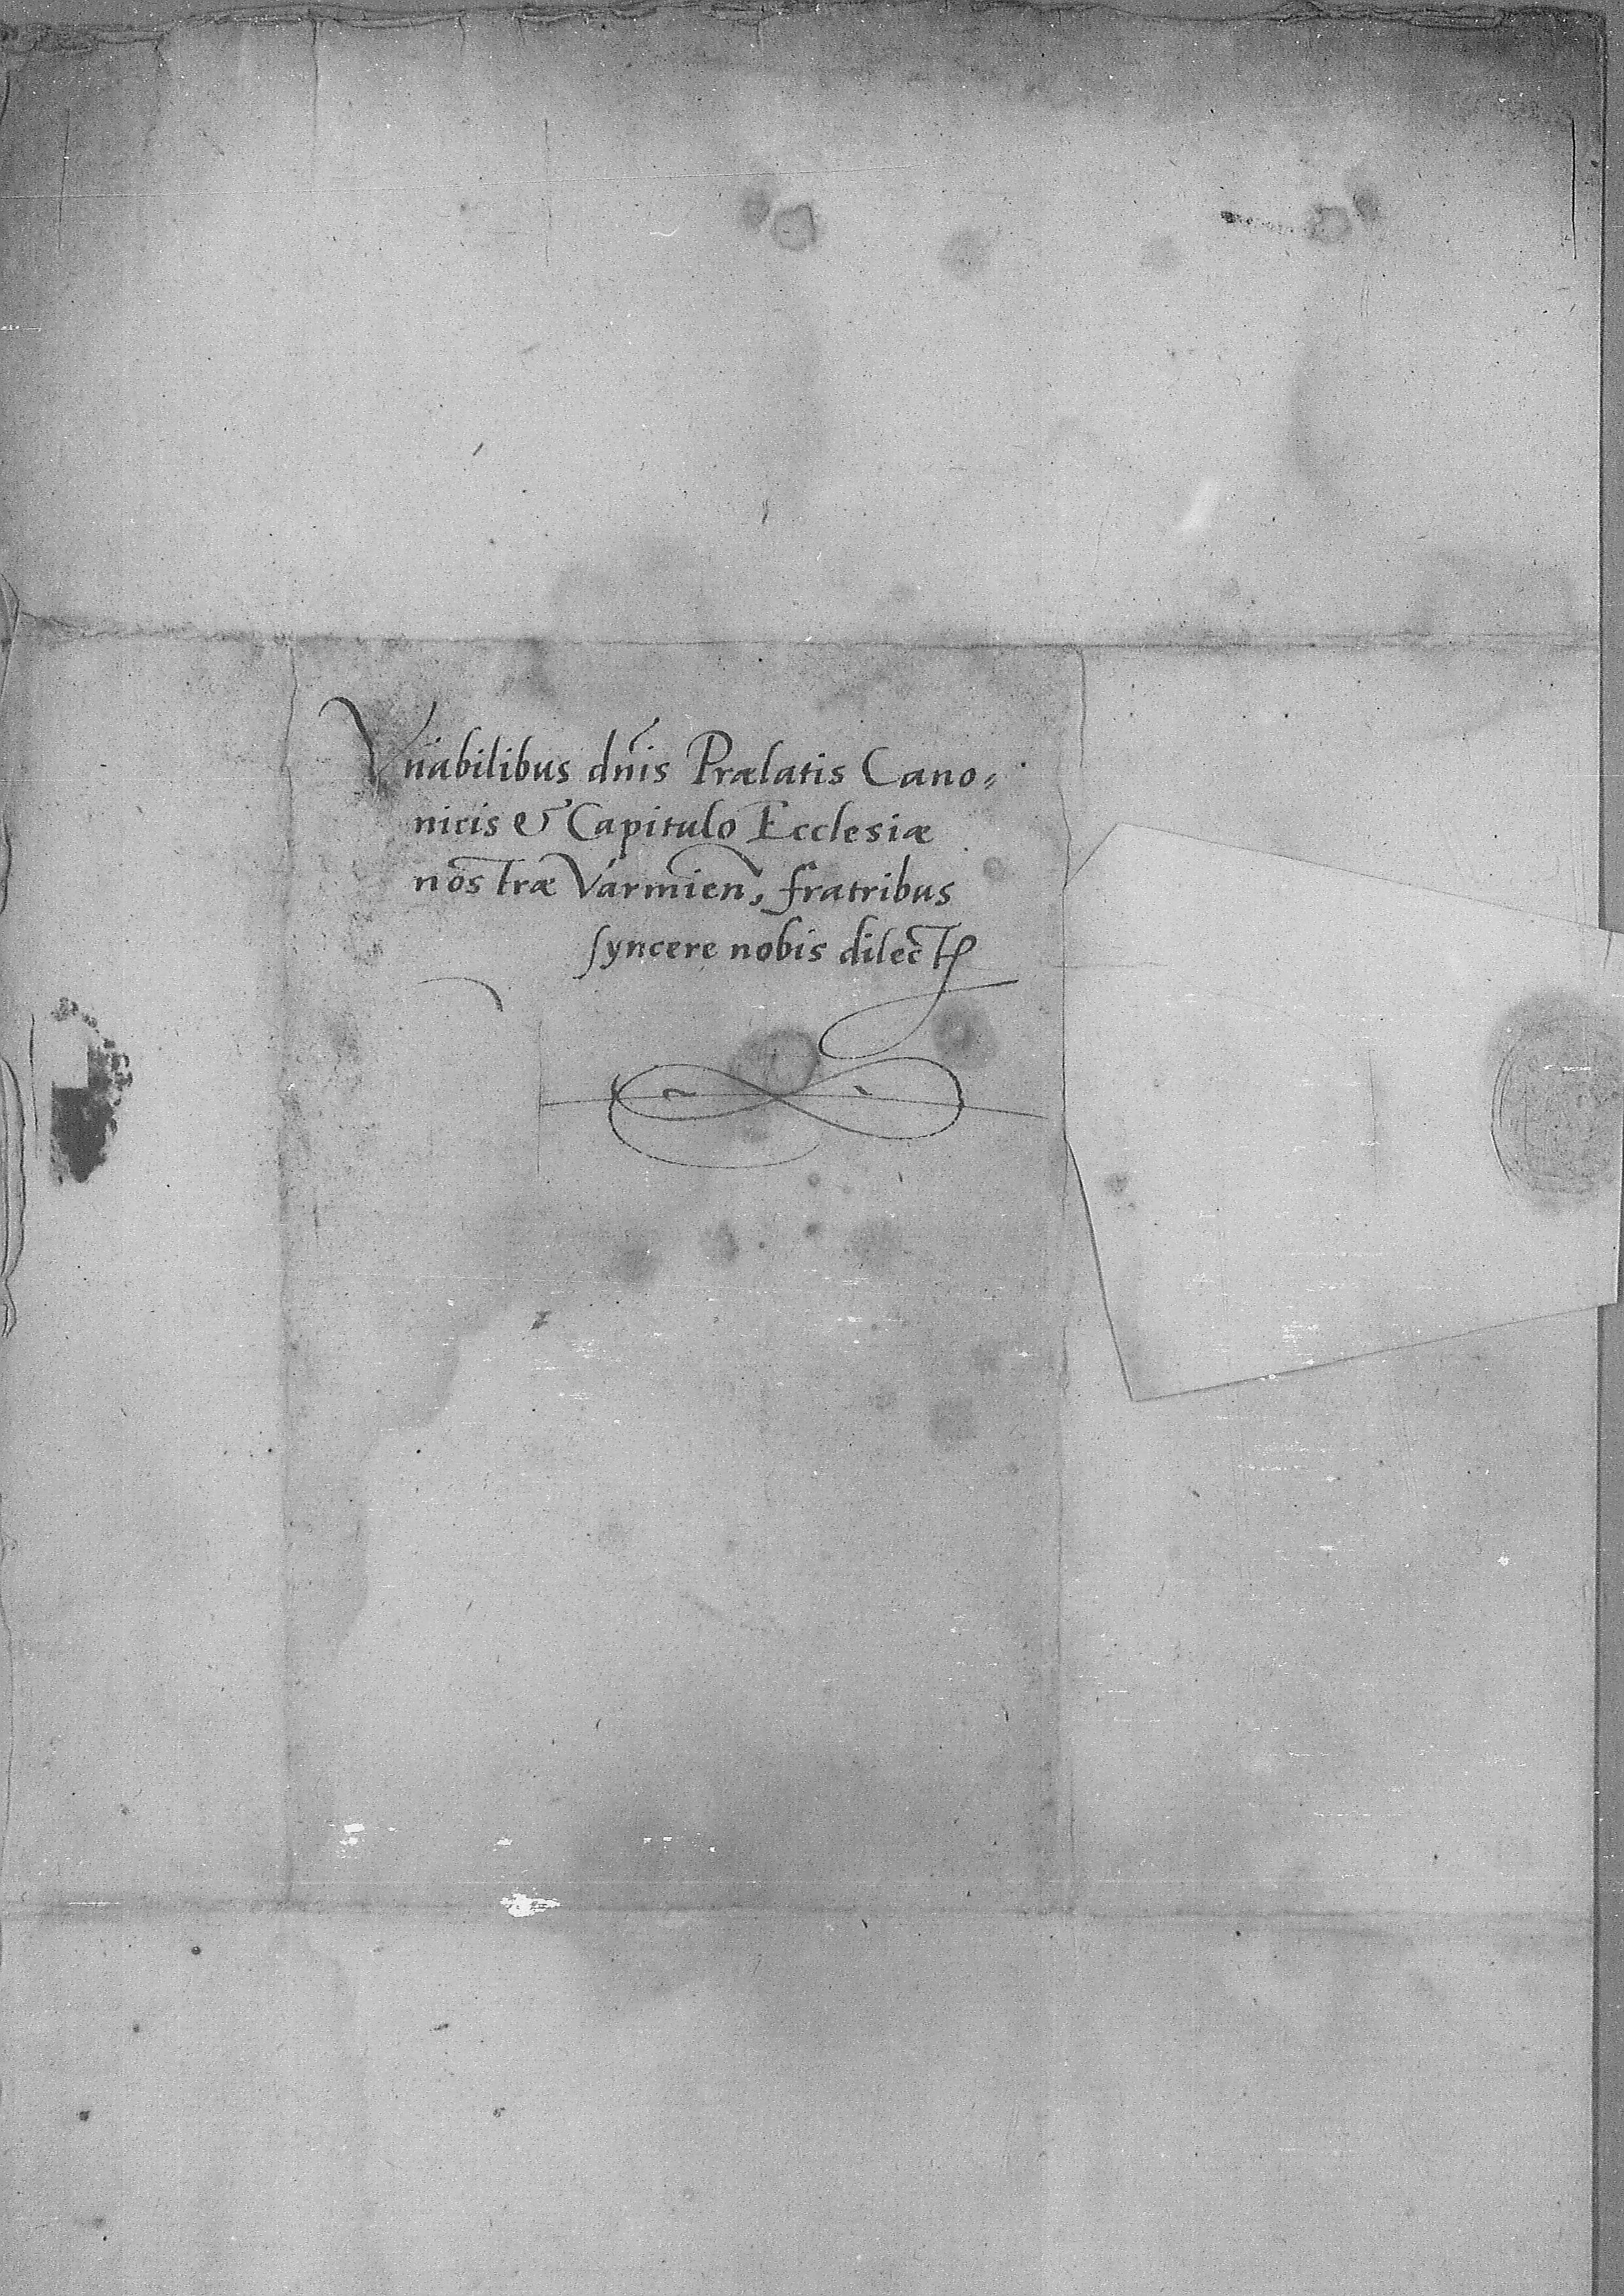 Vnabilibus dnis Prælatis Cano⸗
nicis & Capitulo Ecclesiæ
nostræ Varmien, fratribus
syncere nobis dilectꝭ